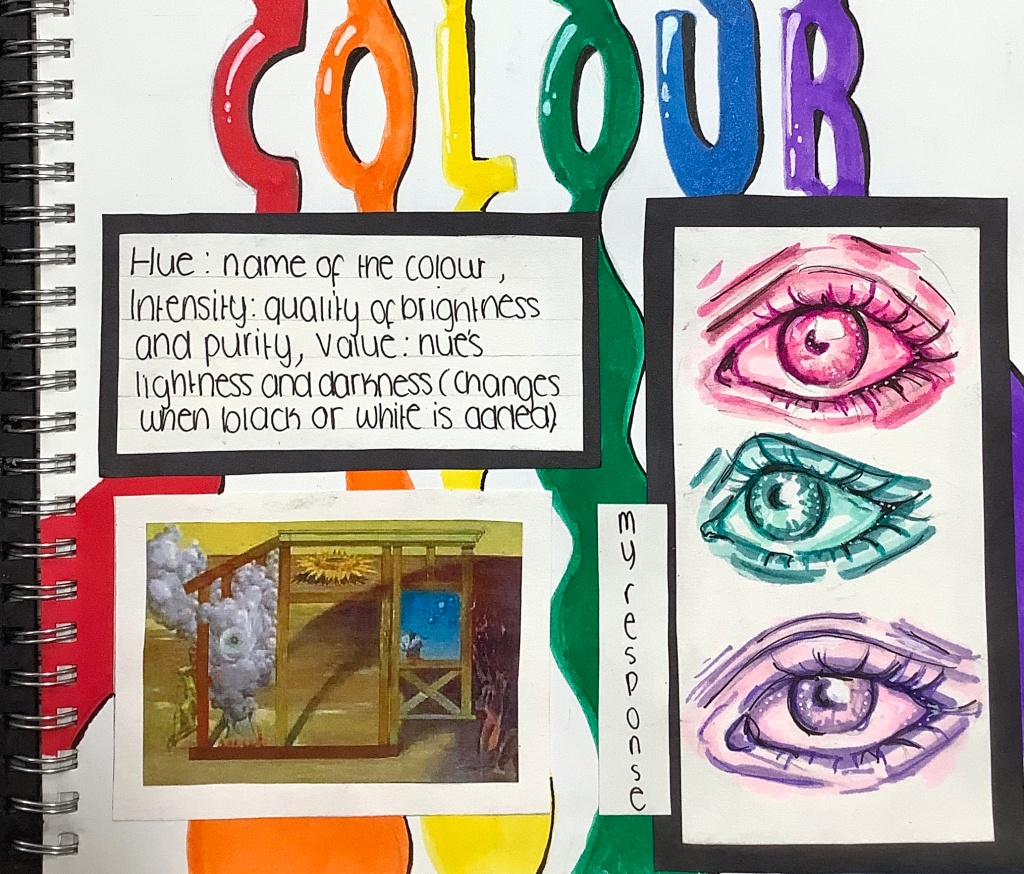 COLOUR
Hue: name of the colour,
Intensity: quality of brightness
and purity, Value: hue's
lightness and darkness (changes
when black or white is added)
my response